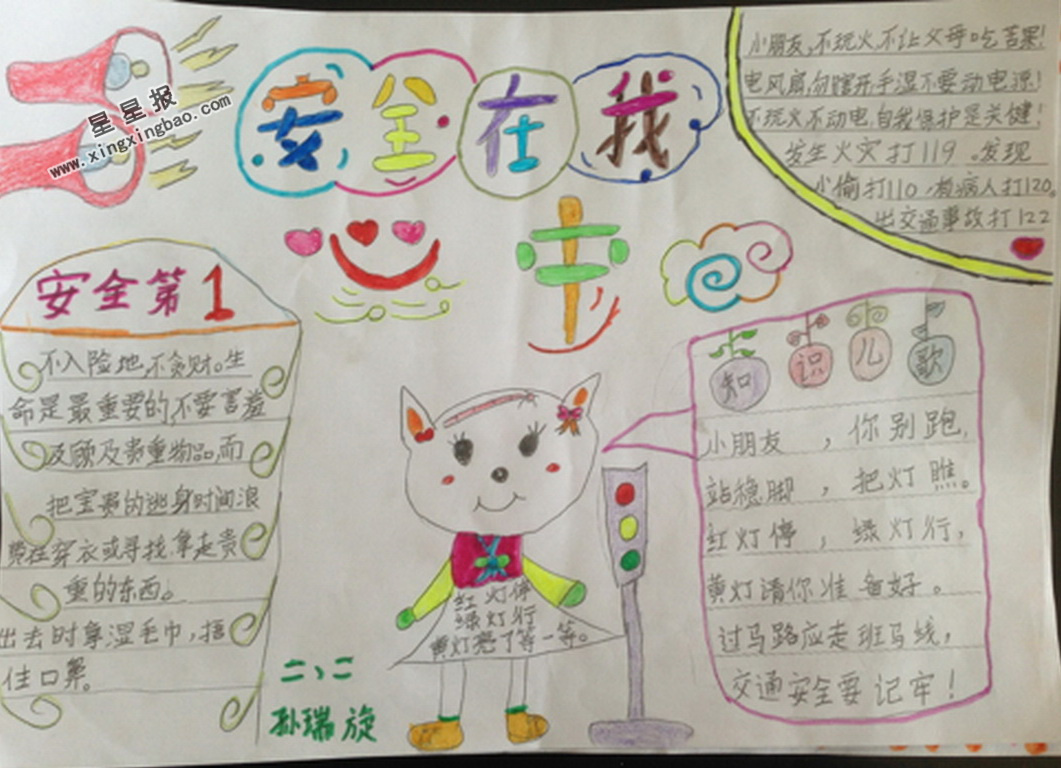 星星报
www.xingxingbao.com
安全在我
心中
小朋友,不玩火,不让父母吃苦果!
电风扇,勿瞎开手湿不要动电源!
不玩火不动电,自我保护是关键!
发生火灾打119。发现
小偷打110,有病人打120。
出交通事故打122
安全第1
不入险地,不贪财。生
命是最重要的,不要害羞
及顾及贵重物品,而
把宝贵的逃身时间浪
费在穿衣或寻找拿走贵
重的东西。
出去时拿湿毛巾,捂
住口鼻。
知识儿歌
小朋友,你别跑,
站稳脚,把灯瞧。
红灯停,绿灯行,
黄灯请你准备好。
过马路应走班马线,
交通安全要记牢!
红灯停
绿灯行
黄灯亮了等一等。
二、二
孙瑞旋